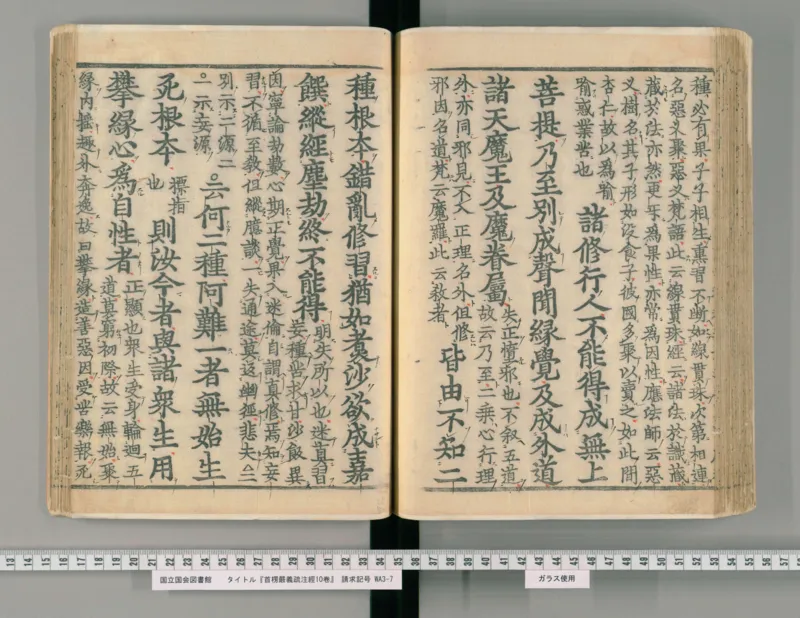 種必有果子子相生熏習不斷如線貫珠次第相連
名惡叉聚惡叉梵語此云線貫珠經云諸法於識藏
藏於法亦然更互為果性亦常為因性應法師云惡
叉樹名其子形如沒食子彼國多聚以賣之如此間
杏仁故以為喻
喻惑業苦也
諸修行人不能得成無上
菩提乃至別成聲聞緣覺及成外道
諸天魔王及魔眷屬
失正墮邪也不叙五道
故云乃至二乘心行理
外亦同邪見不入正理名外但修
邪因名道梵云魔羅此云殺者
皆由不知二
種根本錯亂修習猶如煮沙欲成嘉
饌縱經塵劫終不能得
明失所以也迷真習
妄種苦求甘沙飯異
因寧論劫數心期正覺果入迷倫自謂真修焉知妄
習不循至教但縱臆談一失通途莫返幽徑悲夫△二
別示二源二
一示妄源
云何二種阿難一者無始生
死根本
標指
也
則汝今者與諸衆生用
攀緣心為自性者
正顯也衆生受身輪迴五
道莫窮初際故云無始聚
緣內搖趣外奔逸故曰攀緣造善惡因受苦樂報死
国立国会図書館 タイトル『首楞嚴義疏注經10巻』 請求記号 WA3-7
ガラス使用